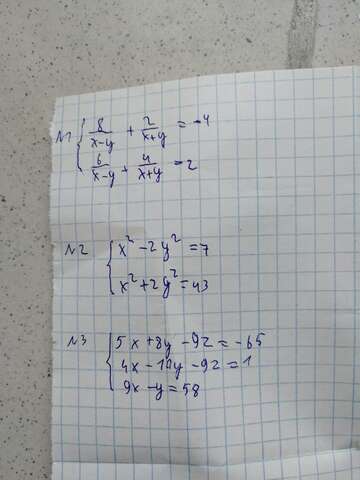 №1 { 8/(x-y) + 2/(x+y) = -4
6/(x-y) + 4/(x+y) = 2
№2 { x² - 2y² = 7
x² + 2y² = 43
№3 { 5x + 8y - 9z = -65
4x - 14y - 9z = 1
9x - y = 58